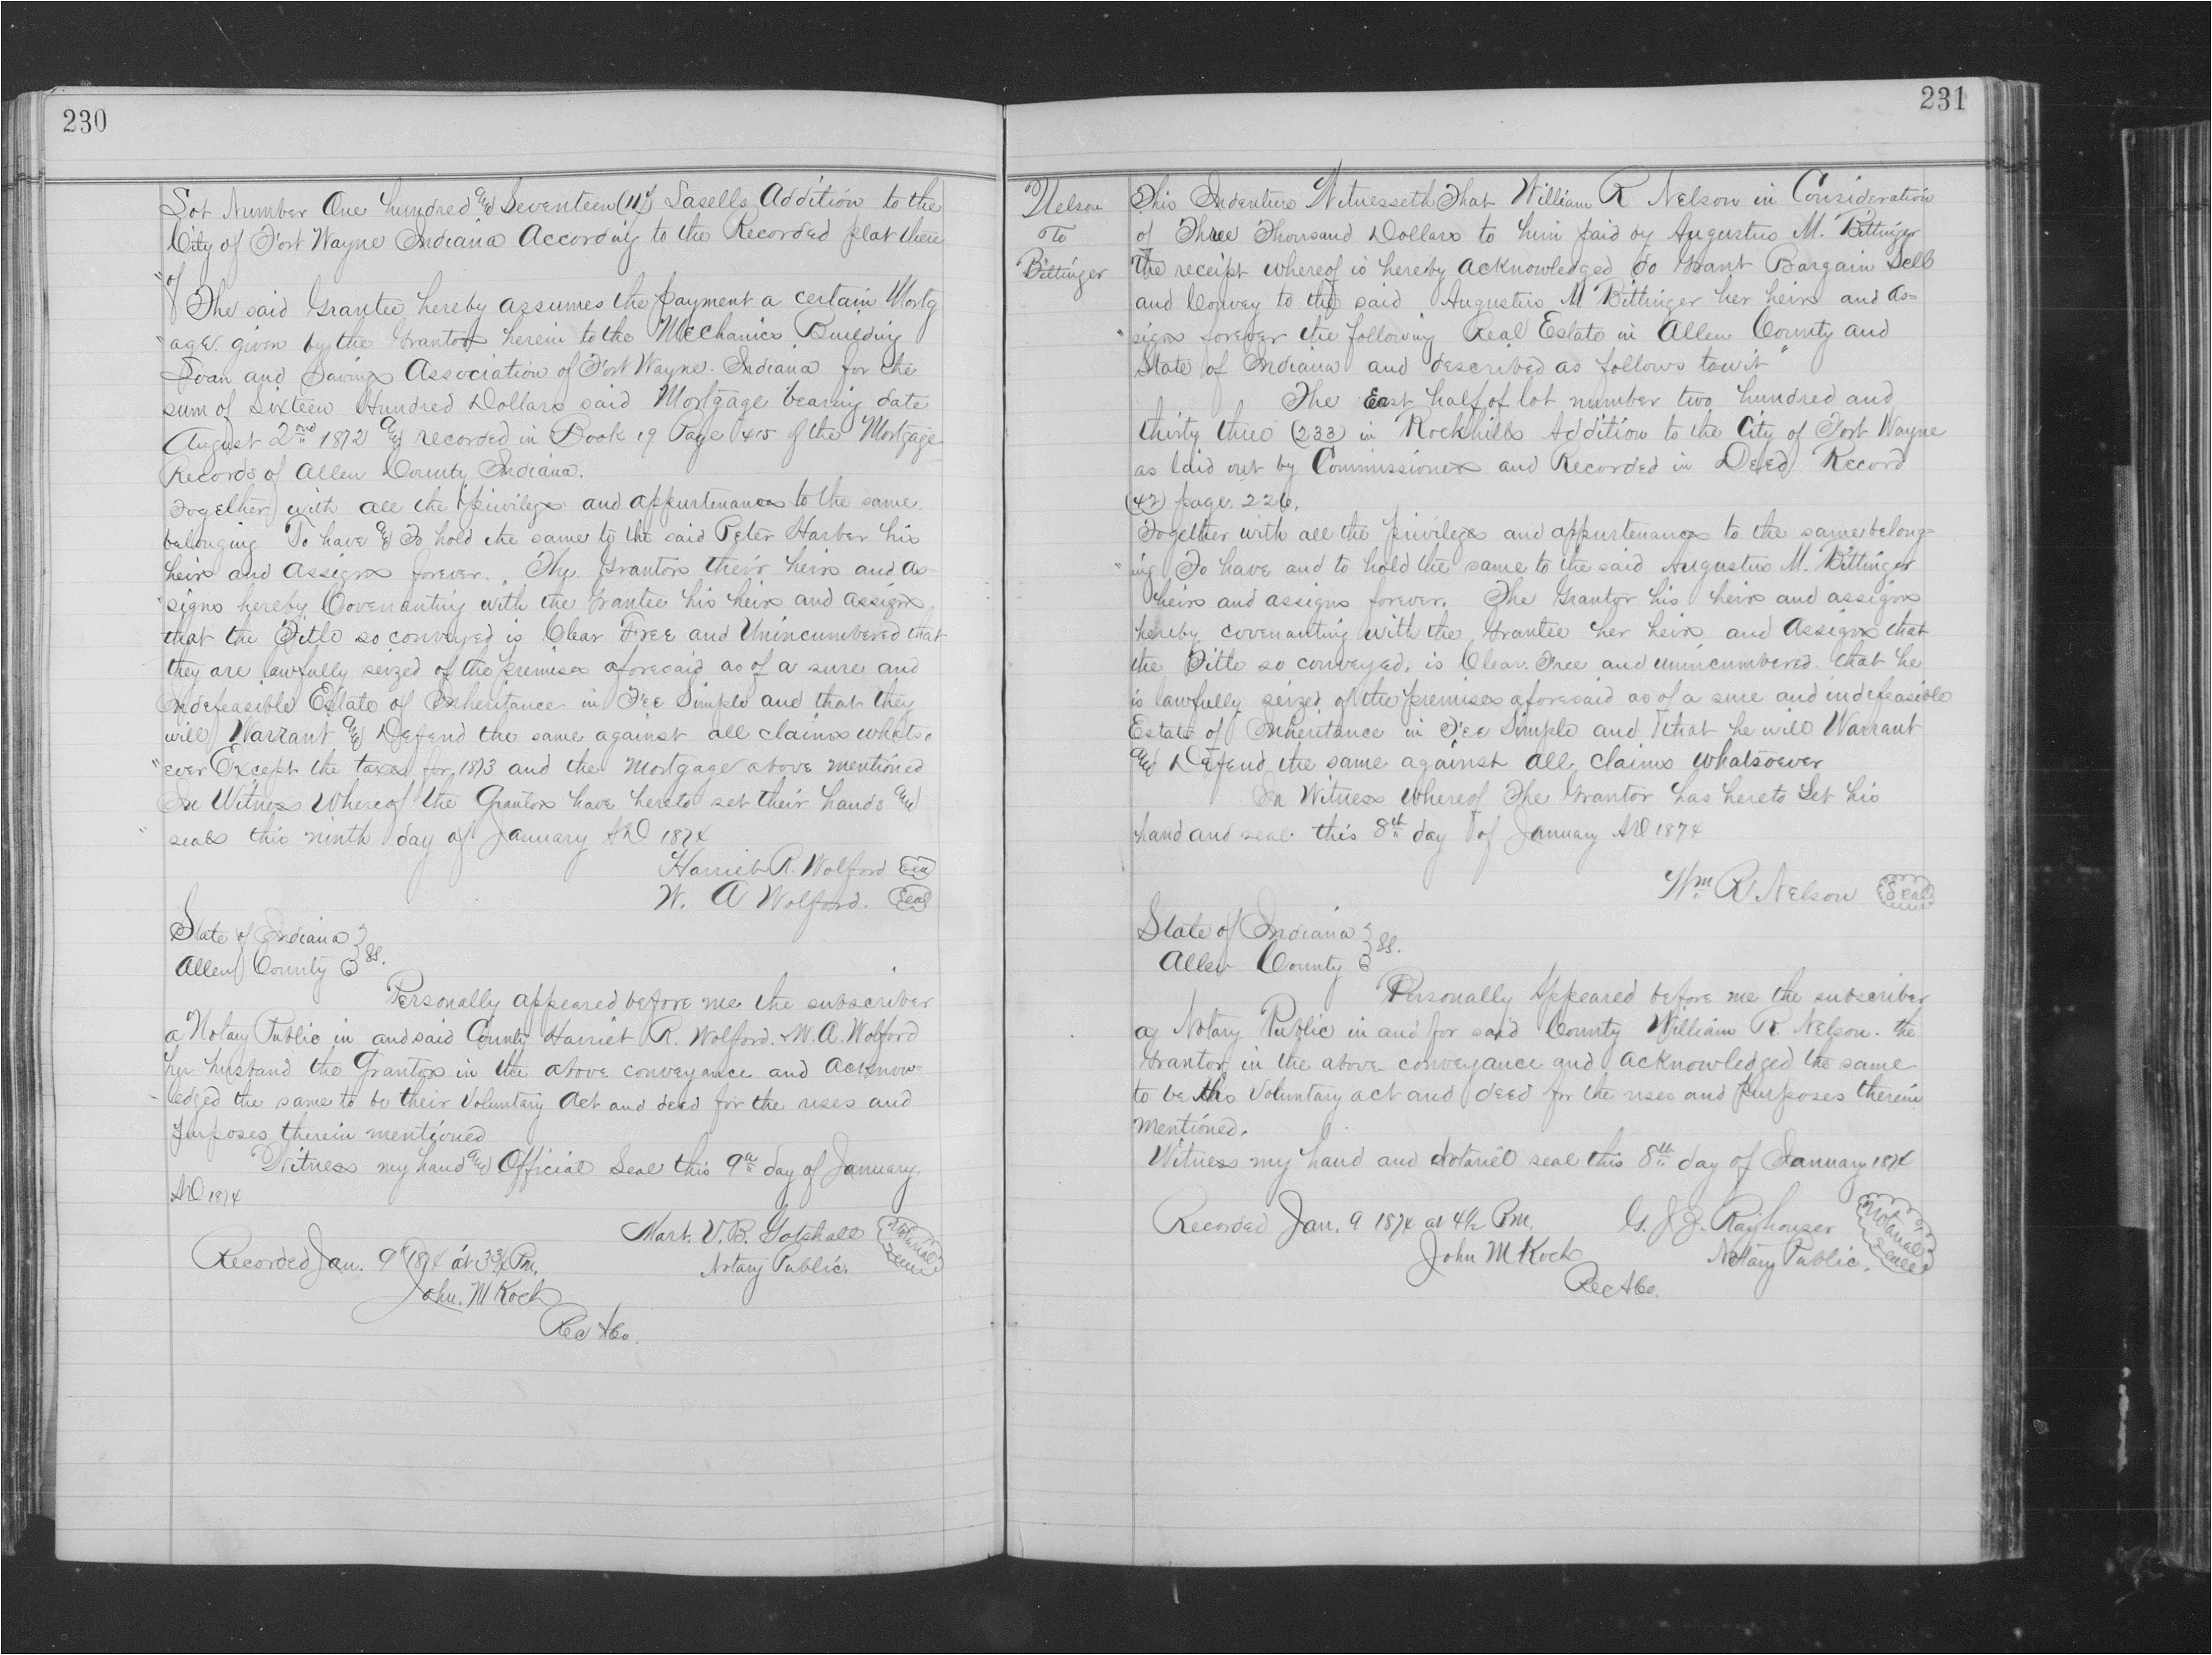 230
Lot Number One hundred and Seventeen (117) Lasells Addition to the
City of Fort Wayne Indiana According to the Recorded plat there
"of
The said Grantee hereby assumes the payment a certain Mortg
"age given by the Grantors herein to the Mechanics Building
Loan and Savings Association of Fort Wayne Indiana for the
sum of Sixteen Hundred Dollars said Mortgage bearing date
August 2nd 1872 and recorded in Book 19 Page 415 of the Mortgage
Records of Allen County Indiana.
Together with all the privileges and appurtenances to the same
belonging To have and To hold the same to the said Peter Harber his
heirs and Assigns forever. The Grantors their heirs and As-
"signs hereby Covenanting with the Grantee his heirs and assigns
that the Title so conveyed is Clear Free and Unincumbered that
they are lawfully seized of the premises aforesaid as of a sure and
Indefeasible Estate of Inheritance in Fee Simple and that they
will Warrant and Defend the same against all claims whatso
"ever Except the taxes for 1873 and the Mortgage above mentioned
In Witness Whereof the Grantors have hereto set their hands and
seals this ninth day of January AD 1874
Harriet R. Wolford Seal
W. A Wolford. Seal
State of Indiana }
Allen County } SS.
Personally appeared before me the subscriber
a Notary Public in and said County Harriet R. Wolford. & W. A. Wolford
her husband the Grantors in the above conveyance and Acknow-
ledged the same to be their Voluntary Act and deed for the uses and
purposes therein mentioned
Witness my hand and Official Seal this 9th day of January
AD 1874
Mart. V. B. Gotshall Notarial Seal
Notary Public.
Recorded Jan. 9 1874 at 3 3/4 Pm.
John. M Koch
Rec A Co.
231
Nelson
To
Bittinger
This Indenture Witnesseth That William R Nelson in Consideration
of Three Thousand Dollars to him paid by Augustus M. Bittinger
The receipt whereof is hereby acknowledged do Grant Bargain Sell
and Convey to the said Augustus M Bittinger her heirs and as=
"signs forever the following Real Estate in Allen County and
State of Indiana and described as follows towit"
The East half of lot number two hundred and
thirty three (233) in Rockhills Addition to the City of Fort Wayne
as laid out by Commissioners and Recorded in Deed Record
(42) page 226.
Together with all the privileges and appurtenances to the same belong=
"ing To have and to hold the same to the said Augustus M. Bittinger
heirs and assigns forever. The Grantor his heirs and assigns
hereby covenanting with the Grantee her heirs and Assigns that
the Title so conveyed, is Clear Free and unincumbered that he
is lawfully seized of the premises aforesaid as of a sure and indefeasible
Estate of Inheritance in Fee Simple and that he will Warrant
and Defend the same against all claims whatsoever
In Witness whereof The Grantor has hereto Set his
hand and seal this 8th day of January AD 1874
Wm R Nelson Seal
State of Indiana }
Allen County } SS.
Personally Appeared before me the subscriber
a Notary Public in and for said County William R. Nelson. the
Grantor in the above conveyance and acknowledged the same
to be his Voluntary act and deed for the uses and purposes therein
mentioned.
Witness my hand and Notarial seal this 8th day of January 1874
G. J. Z. Rayhouzer Notarial Seal
Notary Public.
Recorded Jan. 9 1874 at 4 1/2 Pm.
John M Koch
Rec A Co.